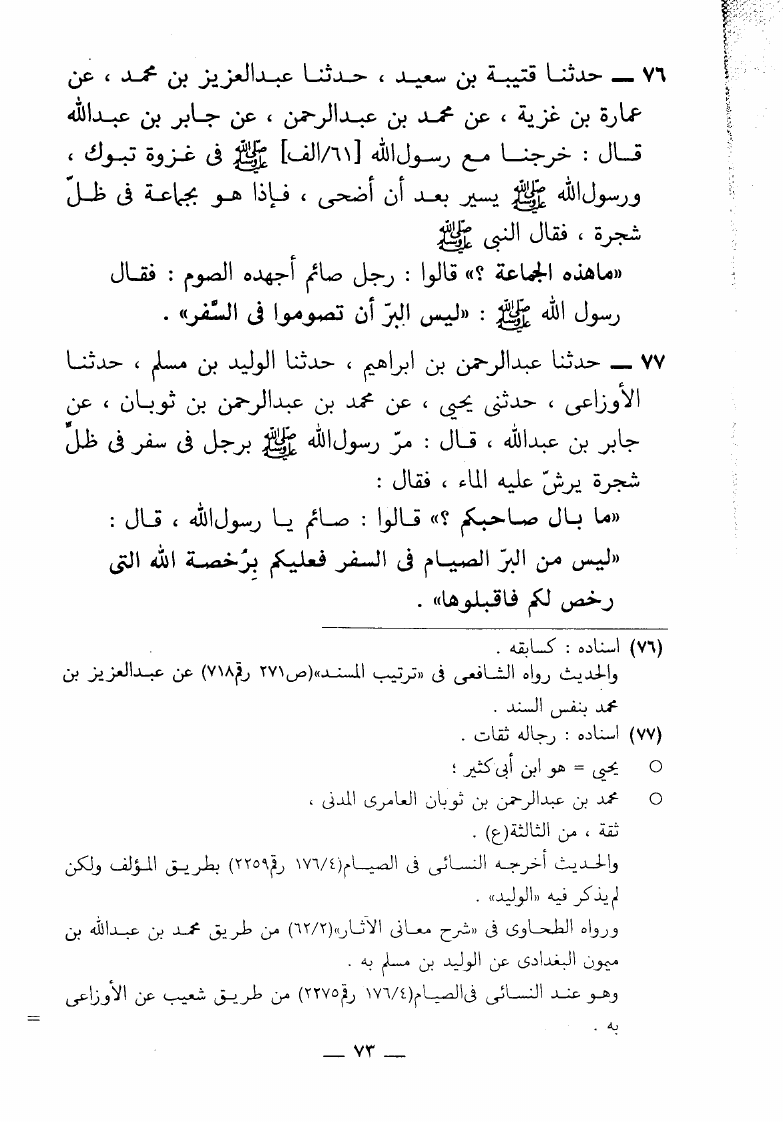 ٧٦ ــ حدثنا قتيبة بن سعيد ، حدثنا عبدالعزيز بن محمد ، عن
عمارة بن غزية ، عن محمد بن عبدالرحمن ، عن جابر بن عبدالله
قال : خرجنا مع رسول الله [٦١/الف] ﷺ فى غزوة تبوك ،
ورسول الله ﷺ يسير بعد أن أضحى ، فإذا هو بجماعة فى ظلّ
شجرة ، فقال النبى ﷺ
«ماهذه الجماعة ؟» قالوا : رجل صائم أجهده الصوم : فقال
رسول الله ﷺ : «ليس البرّ أن تصوموا فى السَّفر» .
٧٧ ــ حدثنا عبدالرحمن بن ابراهيم ، حدثنا الوليد بن مسلم ، حدثنا
الأوزاعى ، حدثنى يحيى ، عن محمد بن عبدالرحمن بن ثوبان ، عن
جابر بن عبدالله ، قال : مرّ رسول الله ﷺ برجل فى سفر فى ظلّ
شجرة يرشّ عليه الماء ، فقال :
«ما بال صاحبكم ؟» قالوا : صائم يا رسول الله ، قال :
«ليس من البرّ الصيام فى السفر فعليكم بِرُخصة الله التى
رخص لكم فاقبلوها» .
(٧٦) اسناده : كسابقه .
والحديث رواه الشافعى فى «ترتيب المسند»(ص٢٧١ رقم٧١٨) عن عبدالعزيز بن
محمد بنفس السند .
(٧٧) اسناده : رجاله ثقات .
○ يحيى = هو ابن أبى كثير ؛
○ محمد بن عبدالرحمن بن ثوبان العامرى المدنى ،
ثقة ، من الثالثة(ع) .
والحديث أخرجه النسائى فى الصيام(١٧٦/٤ رقم٢٢٥٩) بطريق المؤلف ولكن
لم يذكر فيه «الوليد» .
ورواه الطحاوى فى «شرح معانى الآثار»(٦٢/٢) من طريق محمد بن عبدالله بن
ميمون البغدادى عن الوليد بن مسلم به .
وهو عند النسائى فى الصيام(١٧٦/٤ رقم٢٢٧٥) من طريق شعيب عن الأوزاعى
به .
=
ــ ٧٣ ــ